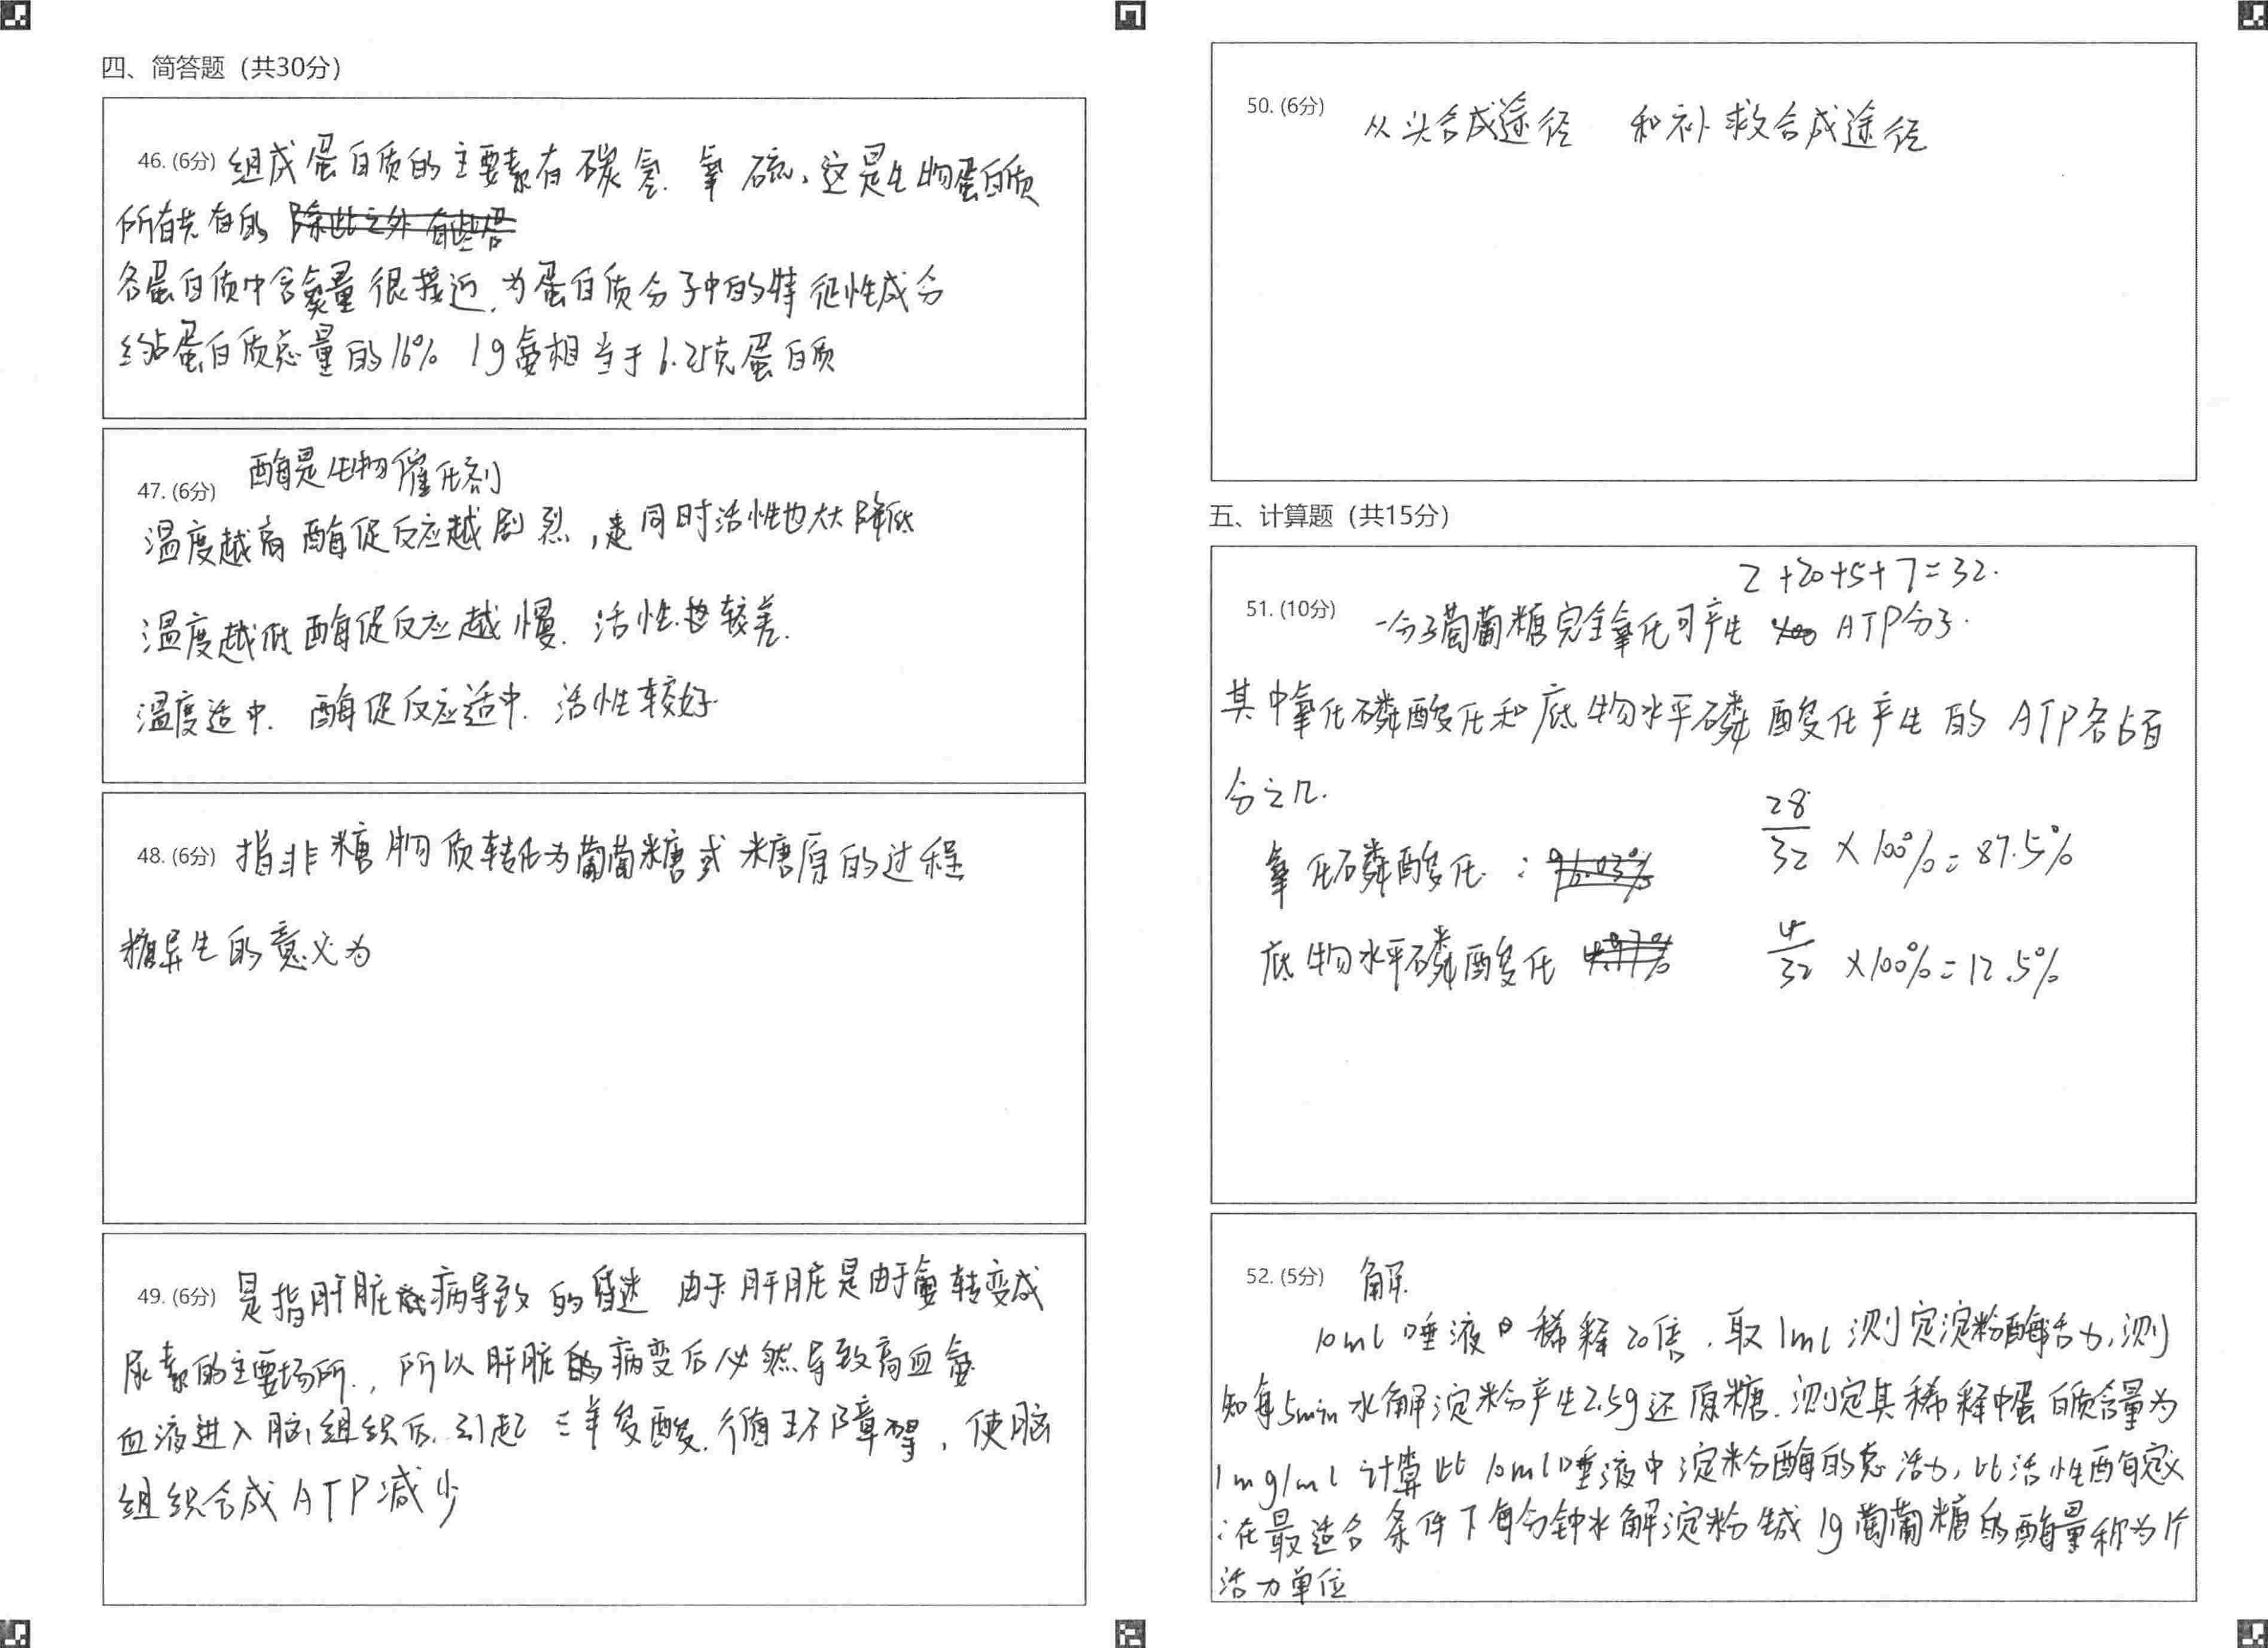 四、简答题（共30分）
46. (6分) 组成蛋白质的主要素有碳氢、氧 硫，这是生物蛋白质
所有共有的 除此之外 有些蛋
各蛋白质中含氮量很接近，为蛋白质分子中的特征性成分
约占蛋白质总量的16% 1g氮相当于6.25克蛋白质
酶是生物催化剂
47. (6分)
温度越高 酶促反应越剧烈，同时活性也大大降低
温度越低 酶促反应越慢. 活性越较差.
温度适中. 酶促反应适中. 活性较好.
48. (6分) 指非糖物质转化为葡萄糖或糖原的过程
糖异生的意义为
49. (6分) 是指肝脏疾病导致的昏迷 由于肝脏是由于氨转变成
尿素的主要场所., 所以肝脏的病变后必然导致高血氨
血液进入脑组织后. 引起三羧酸. 循环障碍，使脑
组织合成ATP减少
50. (6分) 从头合成途径 和补救合成途径
五、计算题（共15分）
2+20+5+7=32.
51. (10分) 一分子葡萄糖完全氧化可产生 ATP分子.
其中氧化磷酸化和底物水平磷酸化产生的ATP各占百
分之几.
氧化磷酸化: 28/32 ×100%=87.5%
底物水平磷酸化 4/32 ×100%=12.5%
52. (5分) 解.
10ml唾液 稀释20倍. 取1ml测定淀粉酶活力, 测
知每5min水解淀粉产生2.5g还原糖. 测定其稀释中蛋白质含量为
1mg/ml 计算此10ml唾液中淀粉酶的总活力, 比活性酶定义
:在最适合条件下每分钟水解淀粉生成1g葡萄糖的酶量称为1个
活力单位